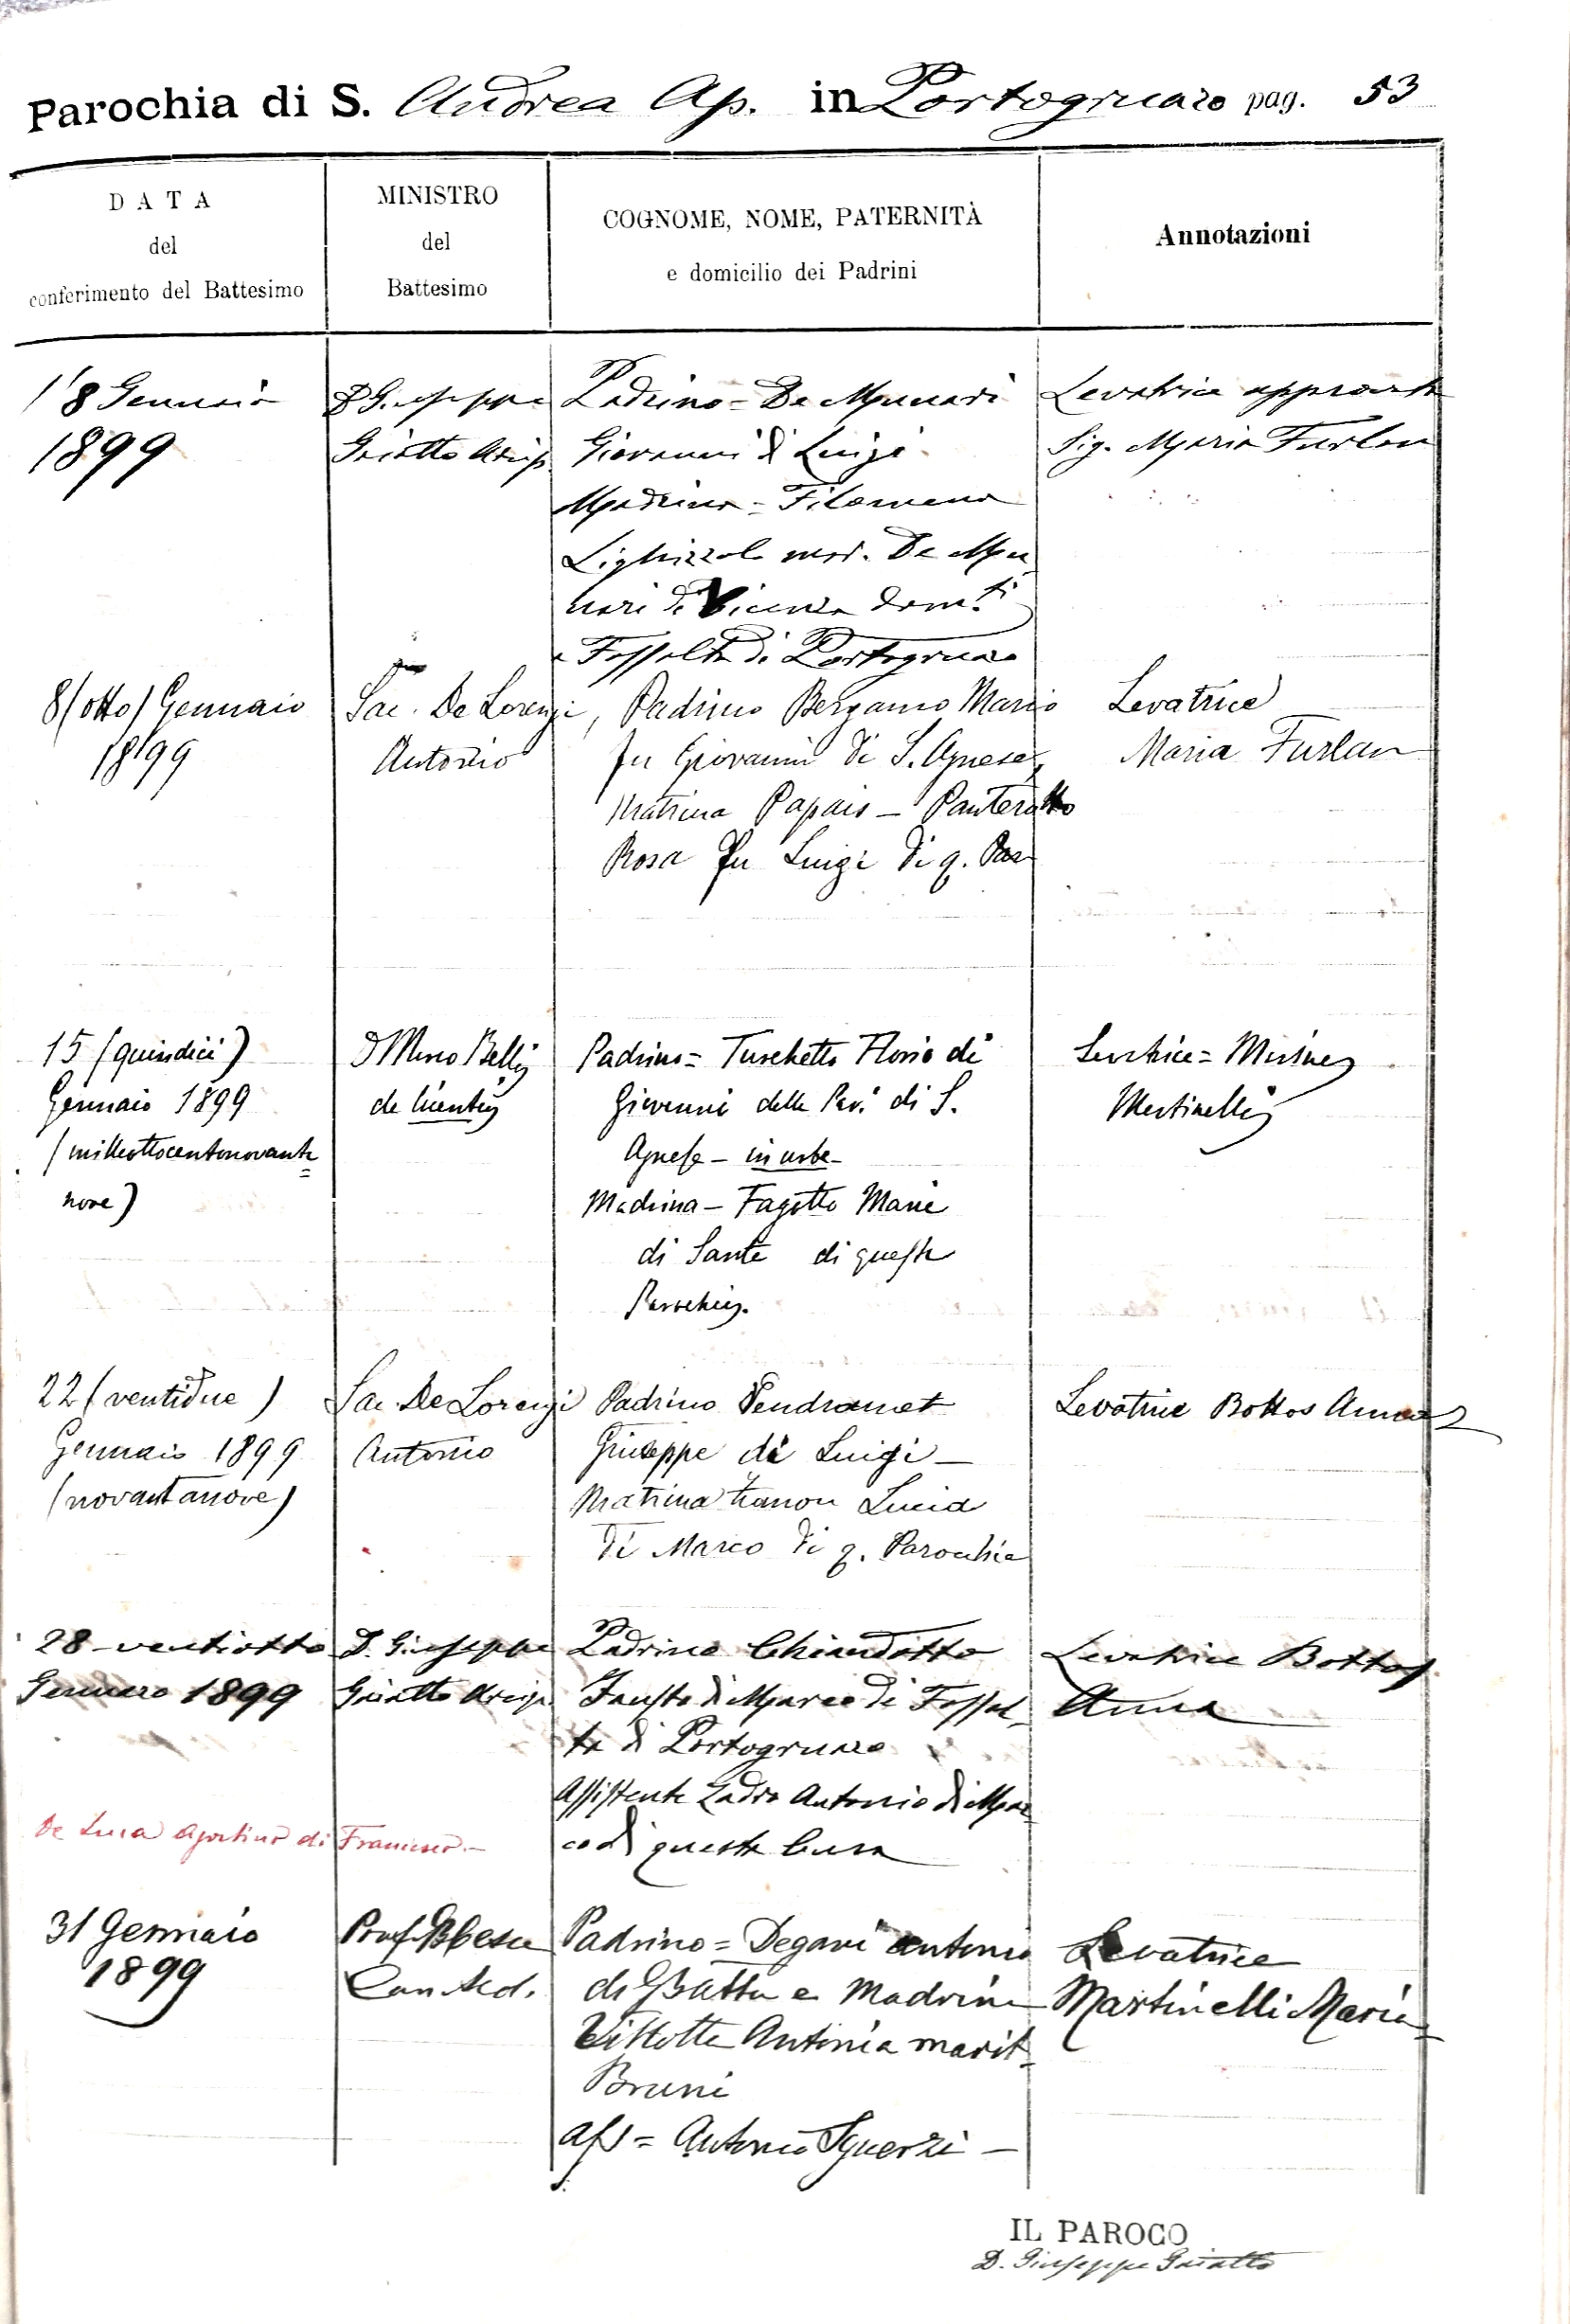 Parochia di S. Andrea Ap. in Portogruaro pag. 53
DATA
del
conferimento del Battesimo
MINISTRO
del
Battesimo
COGNOME, NOME, PATERNITÀ
e domicilio dei Padrini
Annotazioni
8 Gennaio
1899
D Giuseppe
Gaiatto Arcip.
Padrino = De Munari
Giovanni di Luigi
Madrina = Filomena
Lighizzolo mar. De Mu
nari di Vicenza dom.ti
a Fossalta di Portogruaro
Levatrice approvata
Sig. Maria Furlan
8 (otto) Gennaio
1899
Sac. De Lorenzi
Antonio
Padrino Bergamo Mario
fu Giovanni di S. Agnese
Matrina Papais - Panterotto
Rosa fu Luigi di q. Par
Levatrice
Maria Furlan
15 (quindici)
Gennaio 1899
(milleottocentonovanta
nove)
D
Padrino = Turchetto Florio di
Giovanni della Par. di S.
Agnese - in urbe -
Madrina - Fagotto Maria
di Sante di questa
Parochia.
Levatrice =
Martinelli
22 (ventidue)
Gennaio 1899
(novantanove)
Sac De Lorenzi
Antonio
Padrino Vendramet
Giuseppe di Luigi -
Matrina Lucia
di Marco di q. Parochia
Levatrice Bottos Anna
28 - ventiotto
Gennaro 1899
D. Giuseppe
Gaiatto Arcip.
Padrino Chiandotto
Fausto di Marco di Fossal
ta di Portogruaro
Assistente Zadro Antonio di Mar
co di questa Cura
Levatrice Bottos
Anna
De Luca Agostino di Francesco. -
31 Gennaio
1899
Prof.
Can.
Padrino = Degani Antonio
di GBatta e Madrina
Vittotta Antonia marit.
Bruni
ass = Antonio Sguerzi -
Levatrice
Martinelli Maria
IL PAROCO
D. Giuseppe Gaiatto